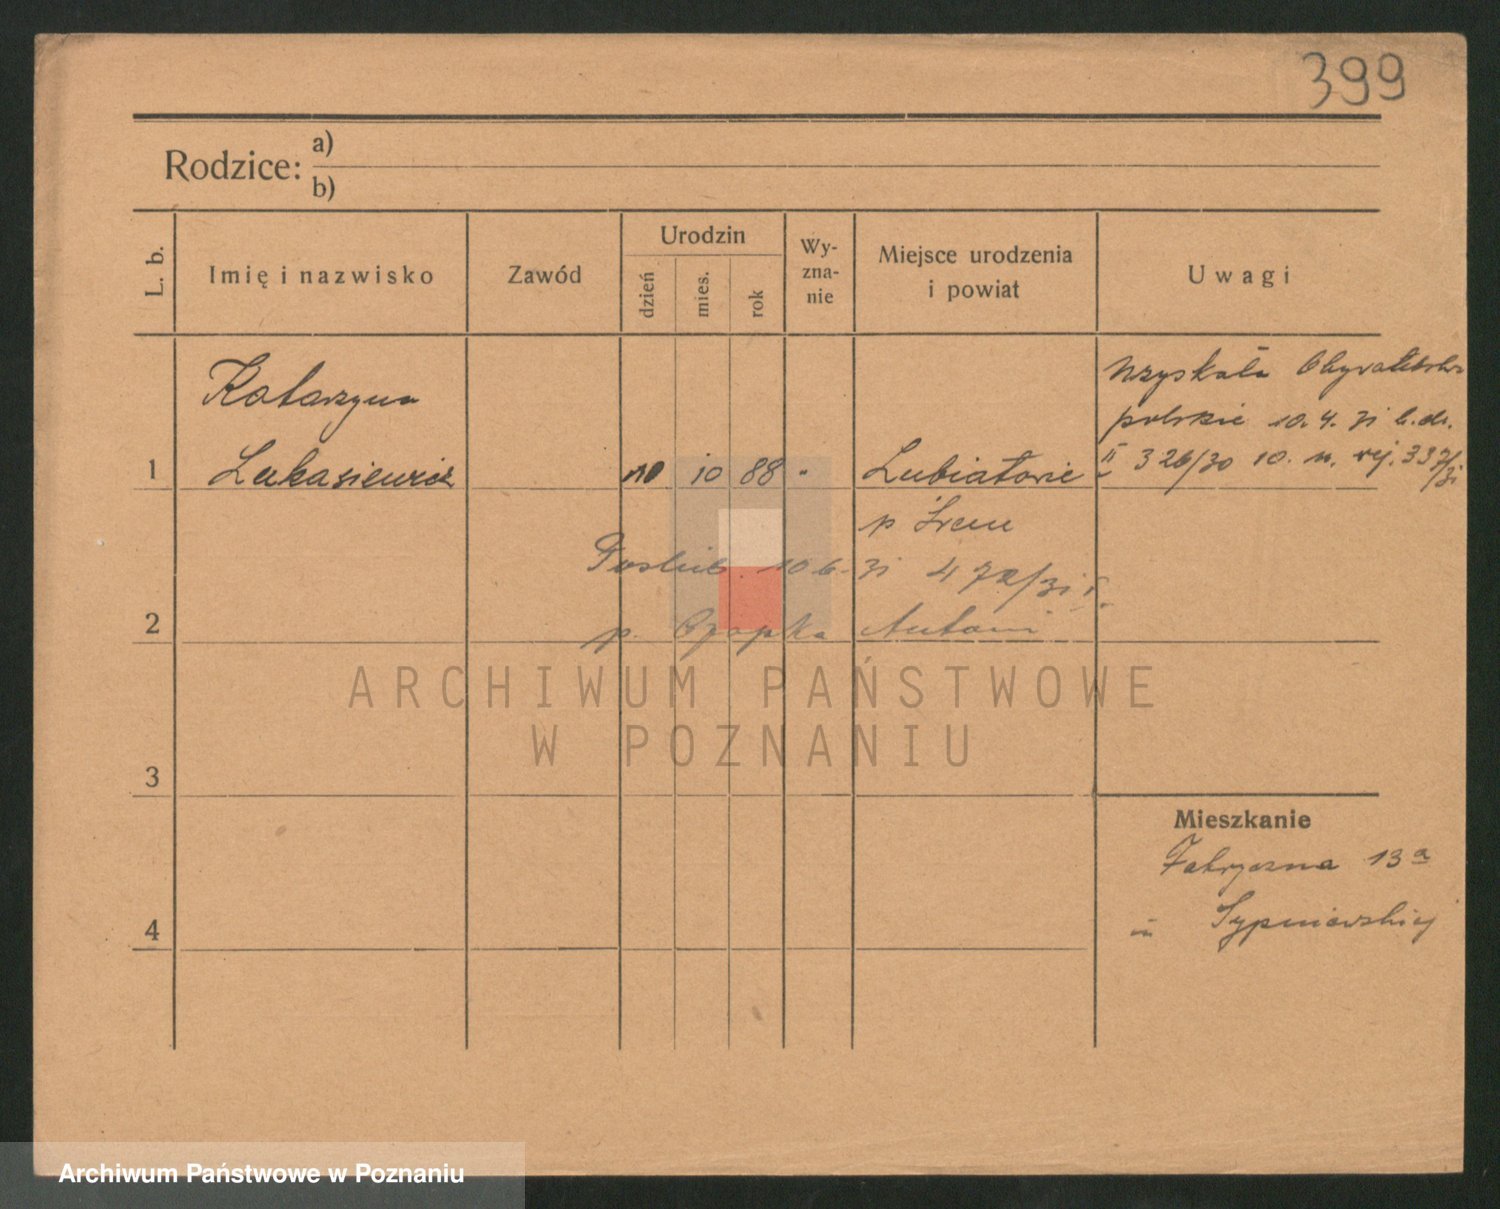 399
Rodzice: a)
b)
L. b.
Imię i nazwisko
Zawód
Urodzin
dzień
mies.
rok
Wy-
zna-
nie
Miejsce urodzenia
i powiat
Uwagi
Katarzyna
uzyskała
polskie 10. 4. 31
1 Łukasiewicz 10 10 88 " Lubiatowie
II 326/30 10. rej. 337/31
p Śrem
Poślub. 10 6. 31 472/31
2 p. Czapka Antoni
ARCHIWUM PAŃSTWOWE
W POZNANIU
3
Mieszkanie
Fabryczna 13a
4
Sypniewskiej
Archiwum Państwowe w Poznaniu